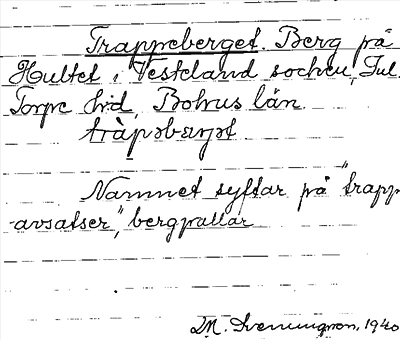 Trappeberget. Berg på
Hultet i Vesteland socken,
Torpe hd, Bohus län.
Namnet syftar på "trapp-
avsatser", bergpallar
M. 1940